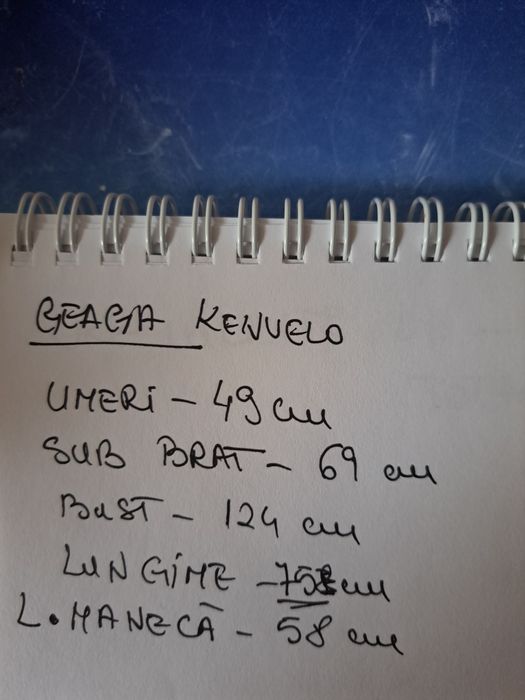 GEAGA KENVELO
UMERI - 49 cm
SUB BRAT - 69 cm
BUST - 124 cm
LUNGIME - cm
L. MANECĂ - 58 cm